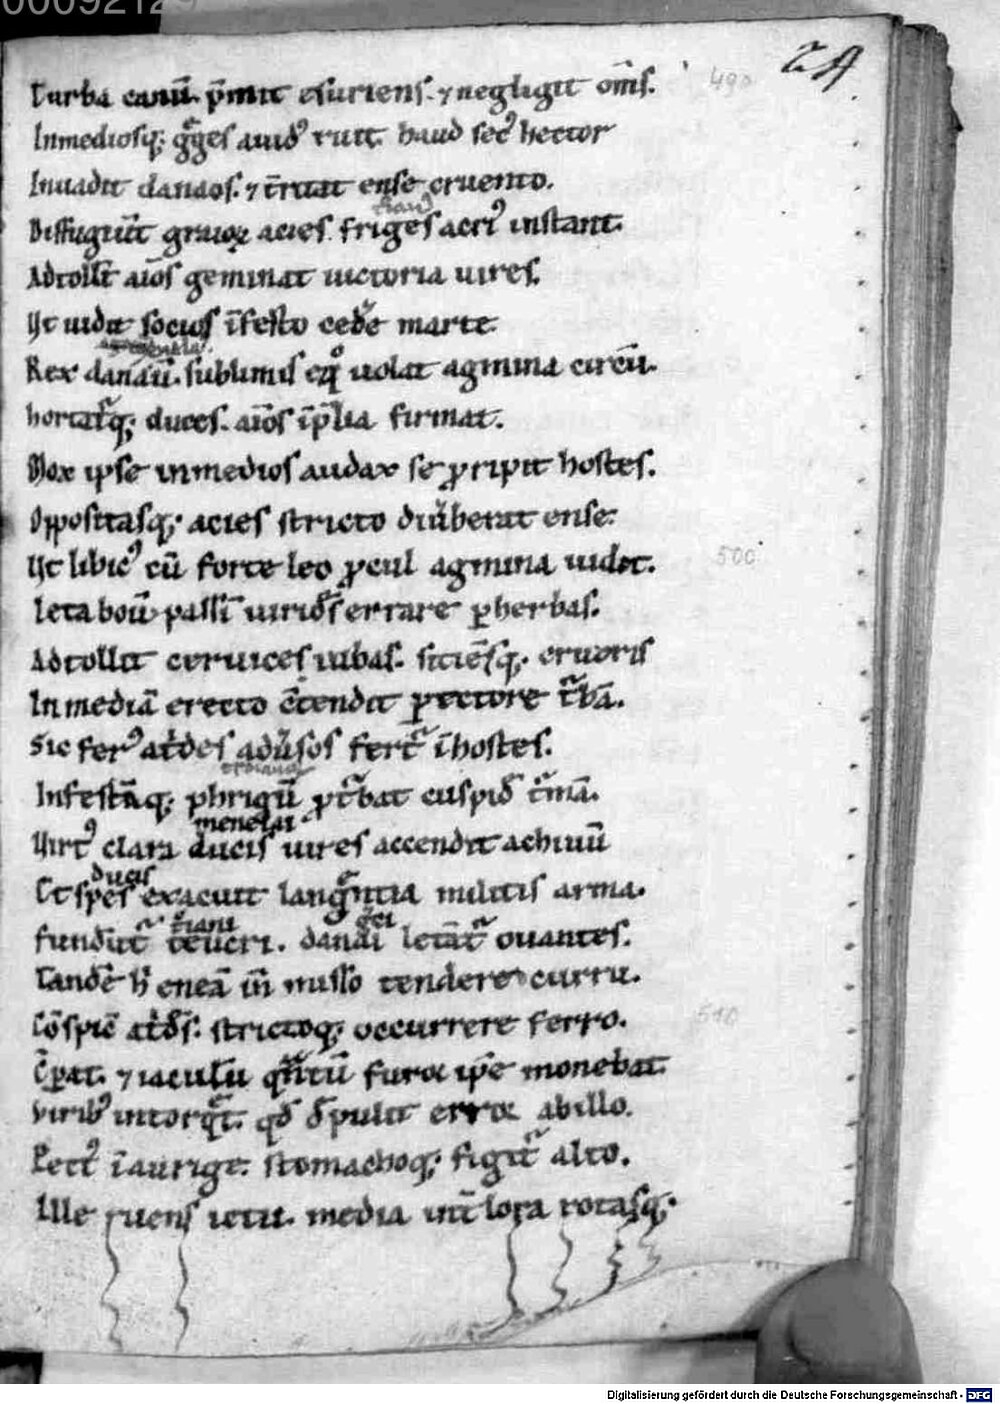 00092129
24
Turba canū. p̄mit esuriens. ⁊ negligit om̄s. 490
Inmediosq; gͣges auidꝰ ruit. haud secꝰ hector
Inuadit danaos. ⁊ t̄ruat ense cruento.
Diffugiūt graioꝝ acies. friges acriꝰ instant.
Adtollūt aīos geminat uictoria uires.
Ut uidit socios īfesto cedere marte
Rex danaū. sublimis eqͦ uolat agmina circū.
hortatͣq; duces. aīos īp̄lia firmat.
Mox ipse inmedios audax se ꝓripit hostes.
Oppositasq; acies stricto diuͥberat ense.
Ut libicꝰ cū forte leo ꝓcul agmina uidet. 500
Leta boū passī uiridēs errare ꝑherbas.
Adtollit ceruices iubas. sitiēsq; cruoris
In mediā erecto c̄tendit pectore tͮbā.
Sic ferꝰ atͥdes aduͥsos fertͬ īhostes.
Infestāq; phrigū ꝓtͮbat cuspidē tͮmā.
menelai
Uirtꝰ clara ducis uires accendit achiuū
ducis
Et spes exacuit langͣntia militis arma.
t̄iani gͤci
fundūtͬ teucri. danai letātͬ ouantes.
Tandē hͥ eneā īm̄ misso tendere curru.
Cōspic̄ atͥdēs. strictoq; occurrere ferro. 510
C̄pat. ⁊ iaculū qͣntū furor ip̄e monebat.
Uiribꝰ intorqͣt. qd̄ d̄pulit error abillo.
Pectꝰ īaurige. stomachoq; figitͬ alto.
Ille ruens ictu. media int̄ lora rotasq;
Digitalisierung gefördert durch die Deutsche Forschungsgemeinschaft - DFG